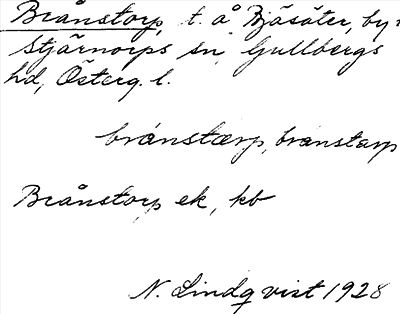 Brånstorp, t. å Bjäsäter, by i
Stjärnorps sn, Gullbergs
hd, Österg. l.
brånstærp, brånstarp
Brånstorp ek, kb
N. Lindqvist 1928